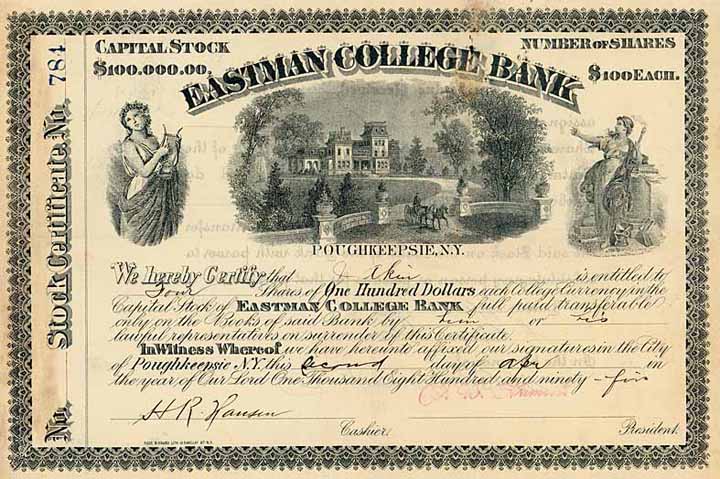 CAPITAL STOCK
$100.000.00.
NUMBER OF SHARES
$100 EACH.
EASTMAN COLLEGE BANK
POUGHKEEPSIE, N.Y.
Stock Certificate. No. 784
No.
We hereby Certify that J. Akin is entitled to
Four Shares of One Hundred Dollars each College Currency in the
Capital Stock of EASTMAN COLLEGE BANK full paid transferable
only on the Books of said Bank by him or his
lawful representatives on surrender of this Certificate.
In Witness Whereof we have hereunto affixed our signatures in the City
of Poughkeepsie N.Y. this second day of Apr in
the year of Our Lord One Thousand Eight Hundred and ninety-five
H R. Hansen
Cashier.
President.